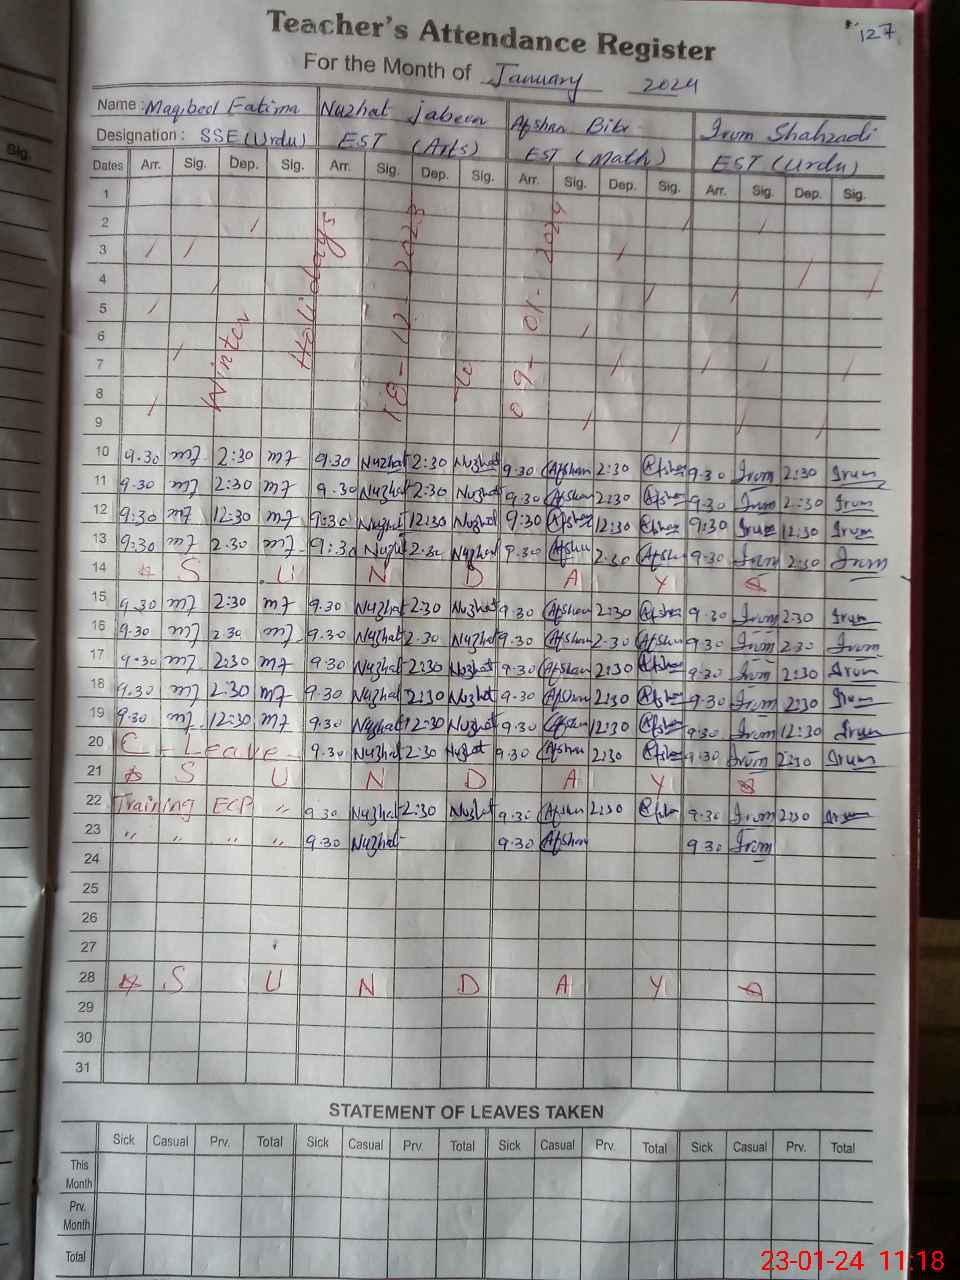 127
Teacher's Attendance Register
For the Month of January 2024
Name: Maqbool Fatima Nuzhat jabeen Afshan Bibi Irum Shahzadi
Designation: SSE (Urdu) EST (Arts) EST (Math) EST (Urdu)
Dates Arr. Sig. Dep. Sig. Arr. Sig. Dep. Sig. Arr. Sig. Dep. Sig. Arr. Sig. Dep. Sig.
1
2
3
4
5
6
7
8
9
Winter Holidays 18-12-2023 to 09-01-2024
10 9.30 mf 2:30 mf 9.30 Nuzhat 2:30 Nuzhat 9.30 Afshan 2:30 Afshan 9.30 Irum 2:30 Irum
11 9.30 mf 2:30 mf 9.30 Nuzhat 2:30 Nuzhat 9:30 Afshan 2:30 Afshan 9.30 Irum 2:30 Irum
12 9:30 mf 12:30 mf 9:30 Nuzhat 12:30 Nuzhat 9:30 Afshan 12:30 Afshan 9:30 Irum 12:30 Irum
13 9:30 mf 2.30 mf 9:30 Nuzhat 2:30 Nuzhat 9.30 Afshan 2:30 Afshan 9.30 Irum 2:30 Irum
14 S U N D A Y
15 9.30 mf 2:30 mf 9.30 Nuzhat 2:30 Nuzhat 9.30 Afshan 2:30 Afshan 9.30 Irum 2:30 Irum
16 9.30 mf 2.30 mf 9.30 Nuzhat 2.30 Nuzhat 9.30 Afshan 2.30 Afshan 9.30 Irum 2:30 Irum
17 9.30 mf 2:30 mf 9.30 Nuzhat 2:30 Nuzhat 9.30 Afshan 2:30 Afshan 9.30 Irum 2:30 Irum
18 9.30 mf 2:30 mf 9.30 Nuzhat 2:30 Nuzhat 9.30 Afshan 2:30 Afshan 9.30 Irum 2:30 Irum
19 9.30 mf 12:30 mf 9.30 Nuzhat 12:30 Nuzhat 9.30 Afshan 12:30 Afshan 9.30 Irum 12:30 Irum
20 C - Leave 9.30 Nuzhat 2:30 Nuzhat 9.30 Afshan 2:30 Afshan 9.30 Irum 2:30 Irum
21 S U N D A Y
22 Training ECP " 9.30 Nuzhat 2:30 Nuzhat 9.30 Afshan 2:30 Afshan 9.30 Irum 2:30 Irum
23 " " " " 9.30 Nuzhat 9.30 Afshan 9.30 Irum
24
25
26
27
28 S U N D A Y
29
30
31
STATEMENT OF LEAVES TAKEN
Sick Casual Prv. Total Sick Casual Prv. Total Sick Casual Prv. Total Sick Casual Prv. Total
This Month
Prv. Month
Total
Sig.
23-01-24 11:18